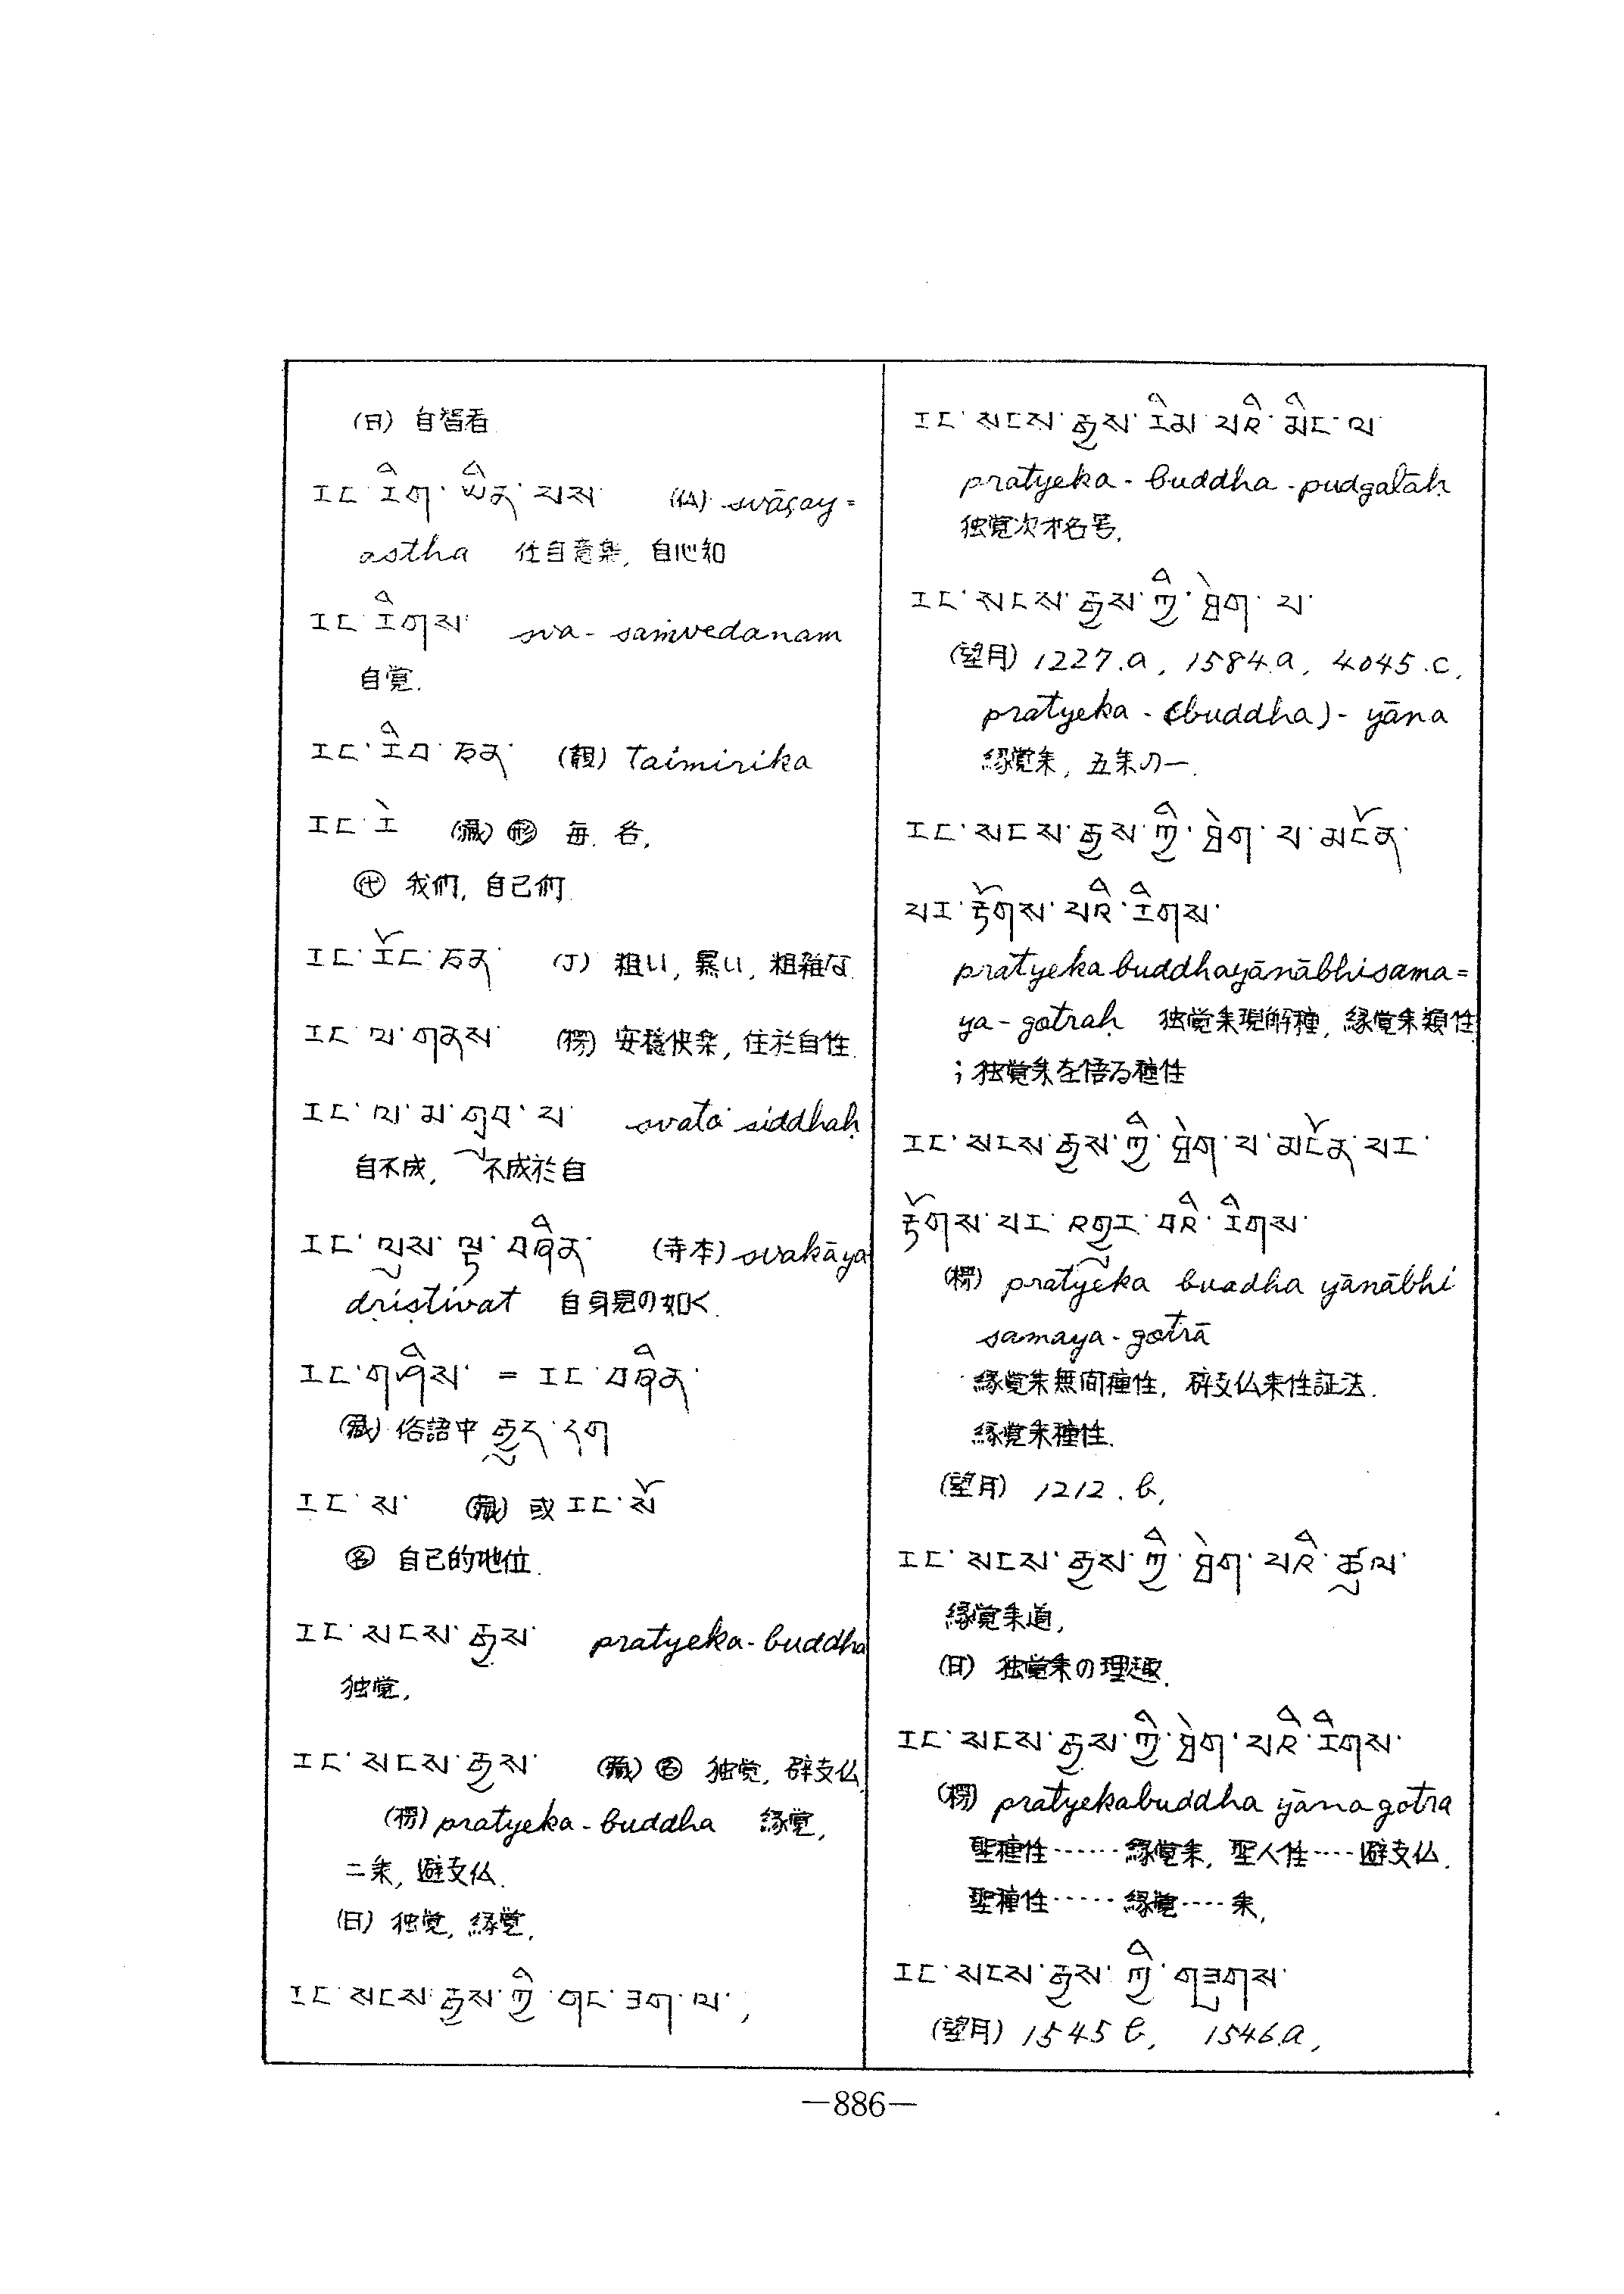 (日) 自智看
རང་རིག་ཡིན་པས་ (仏) svāśay=
astha 住自意楽, 自心知
རང་རིགས་ sva-saṁvedanam
自覚.
རང་རིབ་ཅན་ (覩) Taimirika
རང་རེ (蔵) ㊒ 毎. 各,
㈹ 我們, 自己们
རང་རོང་ཅན་ (J) 粗い, 黒い, 粗雑な
རང་ལ་གནས་ (楞) 安穏快楽, 住於自性.
རང་ལ་མ་གྲུབ་པ་ svato siddhaḥ
自不成, 不成於自
རང་ལུས་ལྟ་བཞིན་ (寺本) svakāya
dṛiṣṭivat 自身見の如く.
རང་གཤིས་ = རང་བཞིན་
(蔵) 俗語中
རང་ས་ (蔵) 或 རང་སོ
㊔ 自己的地位.
རང་སངས་རྒྱས་ pratyeka-buddha
独覚,
རང་སངས་རྒྱས་ (蔵) ㊔ 独覚, 辟支仏
(楞) pratyeka-buddha 縁覚,
二乗, 避支仏.
(日) 独覚, 縁覚,
རང་སངས་རྒྱས་ཀྱི་གང་ཟག་ལ་,
རང་སངས་རྒྱས་རིམ་པའི་མིང་ལ་
pratyeka-buddha-pudgalāḥ
独覚次才名号,
རང་སངས་རྒྱས་ཀྱི་ཐེག་པ་
(望月) 1227.a, 1584.a, 4045.c,
pratyeka-(buddha)-yāna
縁覚乗, 五乗の一.
རང་སངས་རྒྱས་ཀྱི་ཐེག་པ་མངོན་
པར་རྟོགས་པའི་རིགས་
pratyeka buddhayānābhisama=
ya-gotraḥ 独覚乗現解種, 縁覚乗類性
; 独覚乗を悟る種性
རང་སངས་རྒྱས་ཀྱི་ཐེག་པ་མངོན་པར་
རྟོགས་པར་འགྱུར་བའི་རིགས་
(楞) pratyeka buddha yānābhi
samaya-gotrā
縁覚乗無間種性, 辟支仏乗性証法.
縁覚乗種性.
(望月) 1212.b,
རང་སངས་རྒྱས་ཀྱི་ཐེག་པའི་ཚུལ་
縁覚乗道,
(日) 独覚乗の理趣.
རང་སངས་རྒྱས་ཀྱི་ཐེག་པའི་རིགས་
(楞) pratyekabuddha yāna gotra
聖種性……縁覚乗, 聖人性‥‥避支仏.
聖種性……縁覚‥‥乗,
རང་སངས་རྒྱས་ཀྱི་གཟུགས་
(望月) 1545 b, 1546.a,
—886—